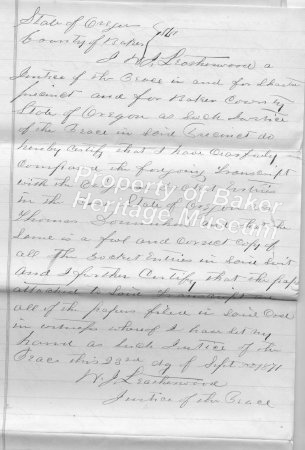 State of Oregon
County of Baker } ss
I W. J. Leatherwood a
Justice of the Peace in and for
precinct and for Baker County
State of Oregon as such Justice
of the Peace in said Precinct do
hereby certify that I have carefully
compared the foregoing transcript
with the Entries
In the State of Oregon
Thomas that the
same is a full and correct copy of
all the Docket Entries in said Suit
And I further certify that the papers
attached to said transcript are
all of the papers filed in said Case
in witness whereof I have set my
hand as such Justice of the
Peace this 23rd day of Sept 1871
W. J. Leatherwood
Justice of the Peace
Property of Baker
Heritage Museum